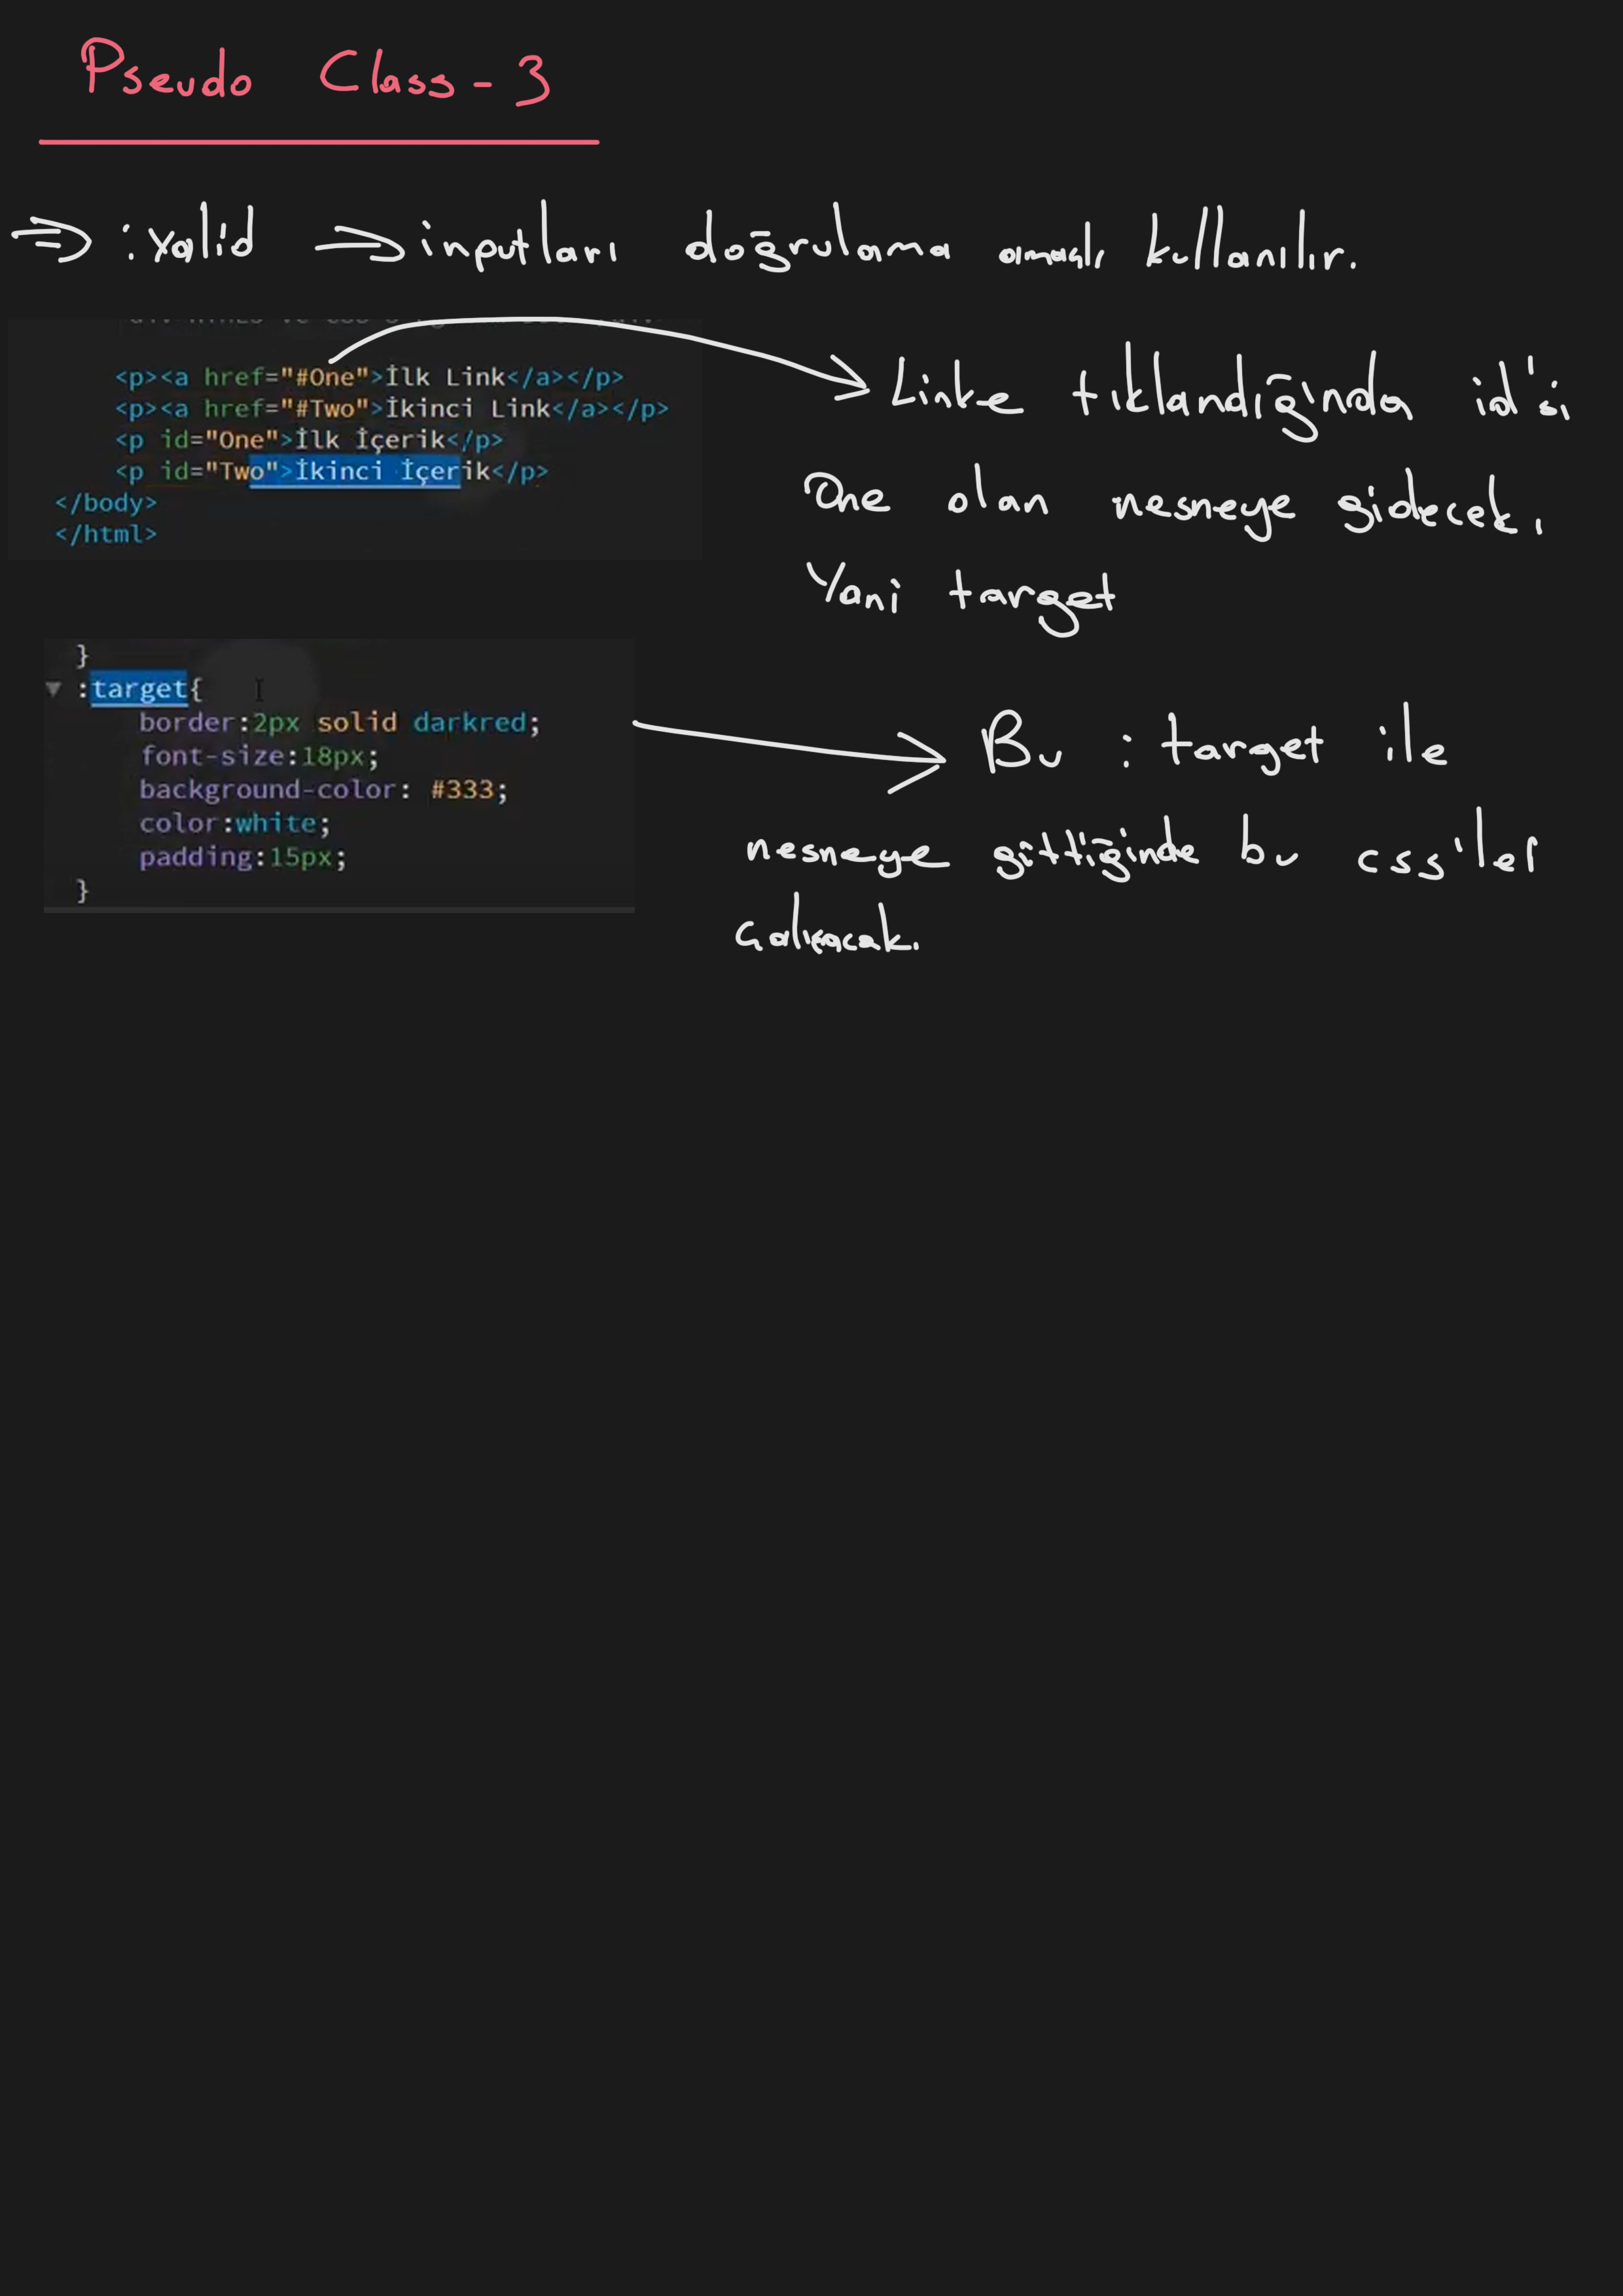 Pseudo Class-3
⇒ :valid → inputları doğrulama amaçlı kullanılır.
<p><a href="#One">İlk Link</a></p>
<p><a href="#Two">İkinci Link</a></p>
<p id="One">İlk İçerik</p>
<p id="Two">İkinci İçerik</p>
</body>
</html>
Linke tıklandiğinda id'si
One olan nesneye gidecek.
Yani target
}
:target{
border:2px solid darkred;
font-size:18px;
background-color: #333;
color:white;
padding:15px;
}
Bu :target ile
nesneye gittiğinde bu css'ler
çalışacak.